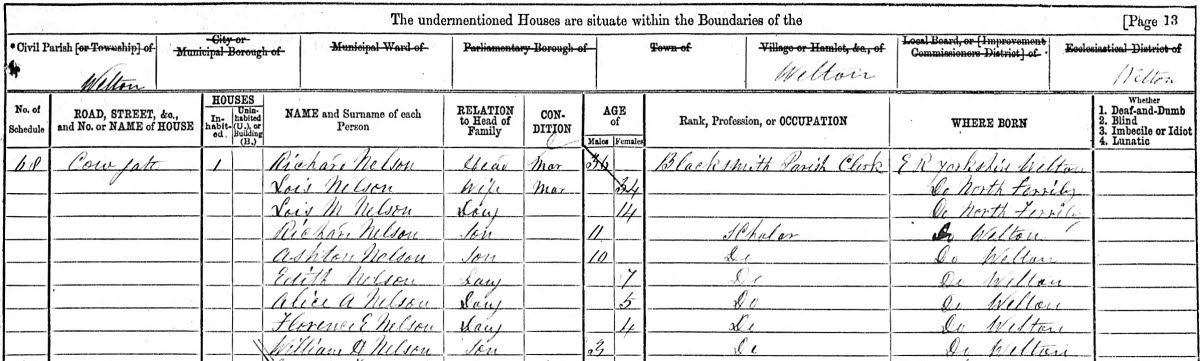 The undermentioned Houses are situate within the Boundaries of the [Page 13
Civil Parish [or Township] of City or Municipal Borough of Municipal Ward of Parliamentary Borough of Town of Village or Hamlet, &c., of Local Board, or [Improvement Commissioners District] of Ecclesiastical District of
Welton Welton Welton
No. of Schedule ROAD, STREET, &c., and No. or NAME of HOUSE HOUSES In-habit-ed. Unin-habited (U.), or Building (B.) NAME and Surname of each Person RELATION to Head of Family CON-DITION AGE of Males Females Rank, Profession, or OCCUPATION WHERE BORN Whether 1. Deaf-and-Dumb 2. Blind 3. Imbecile or Idiot 4. Lunatic
68 Cow gate 1 Richard Nelson Head Mar 36 Blacksmith Parish Clerk E R Yorkshire Welton
Lois Nelson Wife Mar 34 Do North Ferriby
Lois M Nelson Daug 14 Do North Ferriby
Richard Nelson Son 11 Scholar Do Welton
Ashton Nelson Son 10 Do Do Welton
Edith Nelson Daug 7 Do Do Welton
Alice A Nelson Daug 5 Do Do Welton
Florence E Nelson Daug 4 Do Do Welton
William H Nelson Son 3 Do Do Welton